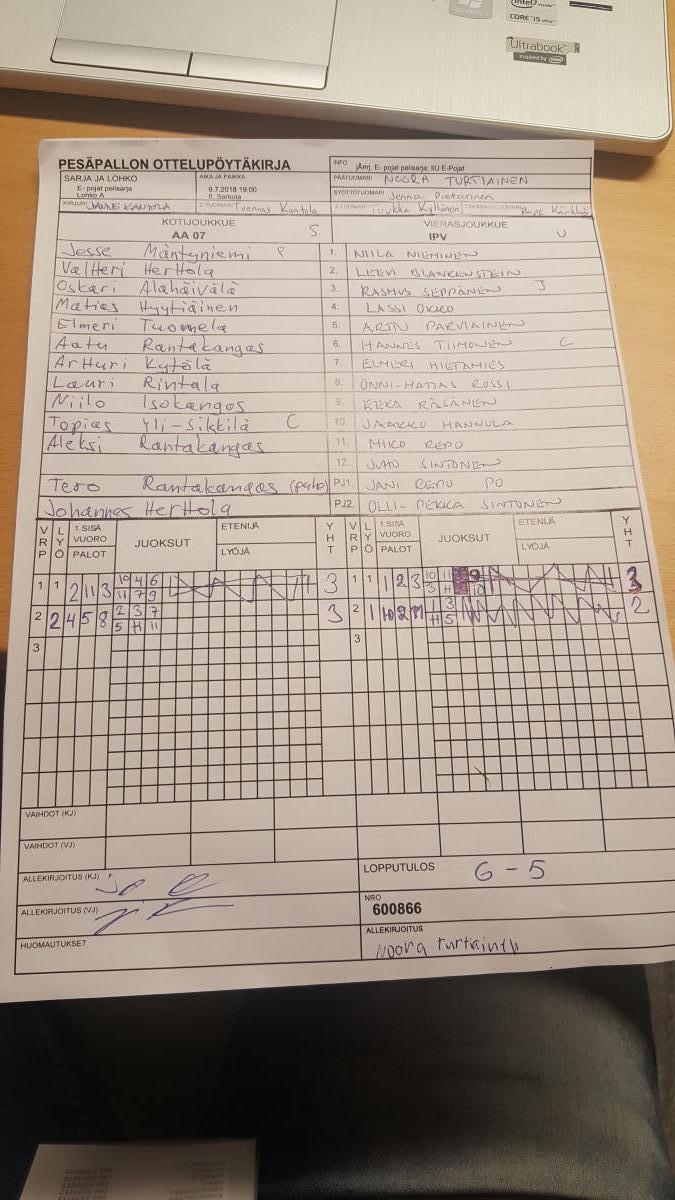 intel
CORE i5
Ultrabook
Inspired by intel
PESÄPALLON OTTELUPÖYTÄKIRJA
INFO
jÄErj. E- pojat pelisarja: IIU E-Pojat
SARJA JA LOHKO
E- pojat pelisarja
Lohko A
AIKA JA PAIKKA
19:00
PÄÄTUOMARI NOORA TURTIAINEN
SYÖTTÖTUOMARI Jenna Pietarinen
KIRJURI JANNE KANTOLA
2-TUOMARI Tuomas Kantola
Tuukka Kyllönen
KOTIJOUKKUE
AA 07
S
VIERASJOUKKUE
IPV
U
Jesse Mäntyniemi P
1. NIILA NIEMINEN
Valtteri Herttola
2. LEEVI BLANKENSTEIN
Oskari Alahäivälä
3. RASMUS SEPPÄNEN J
Matias Hyytiäinen
4. LASSI OKKO
Elmeri Tuomela
5. ARTTU PARVIAINEN
Aatu Rantakangas
6. HANNES TIIMONEN C
Artturi Kytölä
7. ELMERI HIETAMIES
Lauri Rintala
8. ONNI-MATIAS ROSSI
Niilo Isokangas
9. RÄSÄNEN
Topias Yli-Sikkilä C
10. JAAKKO HANNULA
Aleksi Rantakangas
11. MIKO REPO
12. JUHO SINTONEN
Tero Rantakangas
PJ1. JANI REPO PO
Johannes Herttola
PJ2. OLLI-PEKKA SINTONEN
VRP LYÖ 1.SISÄ VUORO PALOT JUOKSUT ETENIJÄ LYÖJÄ YHT
VRP LYÖ 1.SISÄ VUORO PALOT JUOKSUT ETENIJÄ LYÖJÄ YHT
1 1 2 11 3 10 4 6 3
11 7 9
1 1 1 2 3 10 11 9 3
3 H 10
2 2 4 5 8 2 3 7 3
5 H 11
2 1 10 2 11 1 3 2
H 5
3
3
VAIHDOT (KJ)
VAIHDOT (VJ)
ALLEKIRJOITUS (KJ)
LOPPUTULOS 6-5
ALLEKIRJOITUS (VJ)
NRO
600866
HUOMAUTUKSET
ALLEKIRJOITUS
Noora Turtiainen